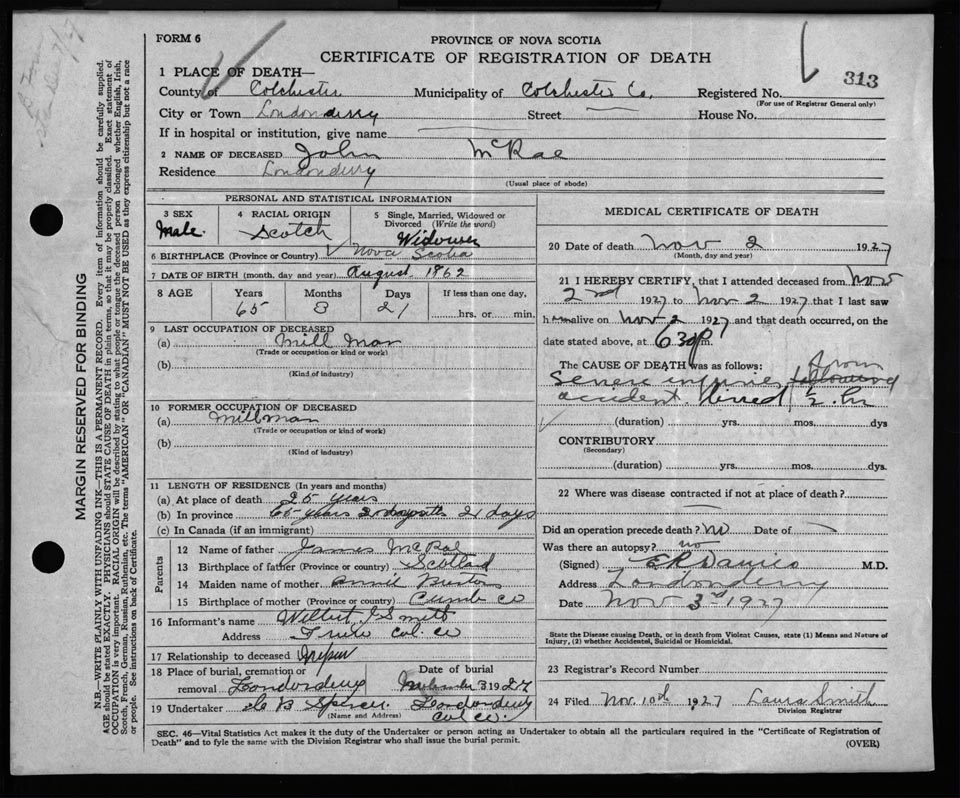 FORM 6
PROVINCE OF NOVA SCOTIA
CERTIFICATE OF REGISTRATION OF DEATH
313
1 PLACE OF DEATH—
County of Colchester Municipality of Colchester Co. Registered No.
(For use of Registrar General only)
City or Town Londonderry Street House No.
If in hospital or institution, give name
2 NAME OF DECEASED John McRae
Residence Londonderry
(Usual place of abode)
PERSONAL AND STATISTICAL INFORMATION
3 SEX 4 RACIAL ORIGIN 5 Single, Married, Widowed or Divorced (Write the word)
Male. Scotch Widower
6 BIRTHPLACE (Province or Country) Nova Scotia
7 DATE OF BIRTH (month, day and year) August 1862
8 AGE Years Months Days If less than one day,
65 3 21 hrs. or min.
9 LAST OCCUPATION OF DECEASED
(a) Mill Man
(Trade or occupation or kind or work)
(b)
(Kind of industry)
10 FORMER OCCUPATION OF DECEASED
(a) Millman
(Trade or occupation or kind of work)
(b)
(Kind of industry)
11 LENGTH OF RESIDENCE (In years and months)
(a) At place of death 25 years
(b) In province 65 years 21 days
(c) In Canada (if an immigrant)
Parents
12 Name of father James McRae
13 Birthplace of father (Province or country) Scotland
14 Maiden name of mother Annie
15 Birthplace of mother (Province or country) Cumb co
16 Informant's name Wilbert J Smith
Address Col. co
17 Relationship to deceased
18 Place of burial, cremation or removal Londonderry
Date of burial 3 1927
19 Undertaker Spencer Londonderry Col. co.
(Name and Address)
MEDICAL CERTIFICATE OF DEATH
20 Date of death Nov 2 1927
(Month, day and year)
21 I HEREBY CERTIFY, that I attended deceased from Nov
2nd 1927 to Nov 2 1927 that I last saw
him alive on Nov 2 1927 and that death occurred, on the
date stated above, at 6 30 p m.
The CAUSE OF DEATH was as follows:
Severe injuries from following
accident. lived 1/2 hr
(duration) yrs. mos. dys
CONTRIBUTORY
(Secondary)
(duration) yrs. mos. dys.
22 Where was disease contracted if not at place of death?
Did an operation precede death? no Date of
Was there an autopsy? no
(Signed) E R Davies M.D.
Address Londonderry
Date Nov 3rd 1927
State the Disease causing Death, or in death from Violent Causes, state (1) Means and Nature of
Injury, (2) whether Accidental, Suicidal or Homicidal.
23 Registrar's Record Number
24 Filed Nov. 10th 1927 Laura Smith
Division Registrar
SEC. 46—Vital Statistics Act makes it the duty of the Undertaker or person acting as Undertaker to obtain all the particulars required in the "Certificate of Registration of
Death" and to fyle the same with the Division Registrar who shall issue the burial permit.
(OVER)
MARGIN RESERVED FOR BINDING
N.B.—WRITE PLAINLY WITH UNFADING INK—THIS IS A PERMANENT RECORD. Every item of information should be carefully supplied.
AGE should be stated EXACTLY. PHYSICIANS should STATE CAUSE OF DEATH in plain terms, so that it may be properly classified. Exact statement of
OCCUPATION is very important. RACIAL ORIGIN will be described by stating to what people or tongue the deceased person belonged whether English, Irish,
Scotch, French, German, Russian, Ruthenian, etc. The terms "AMERICAN" OR "CANADIAN" MUST NOT BE USED as they express citizenship but not a race
or people. See instructions on back of Certificate.